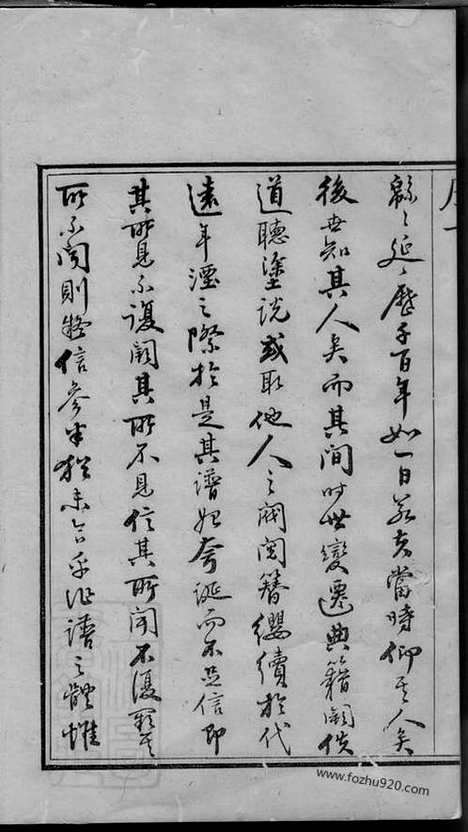 緜〻延〻歷千百年如一日若夫當時仰其人矣
後世知其人矣而其間時世變遷典籍闕佚
道聽塗說或取他人之閥閱簪纓續於代
遠年湮之際於是其譜始夸誕而不足信即
其所見不復闕其所不見信其所聞不復疑其
所不聞則疑信參半猶未合乎作譜之體惟
www.fozhu920.com